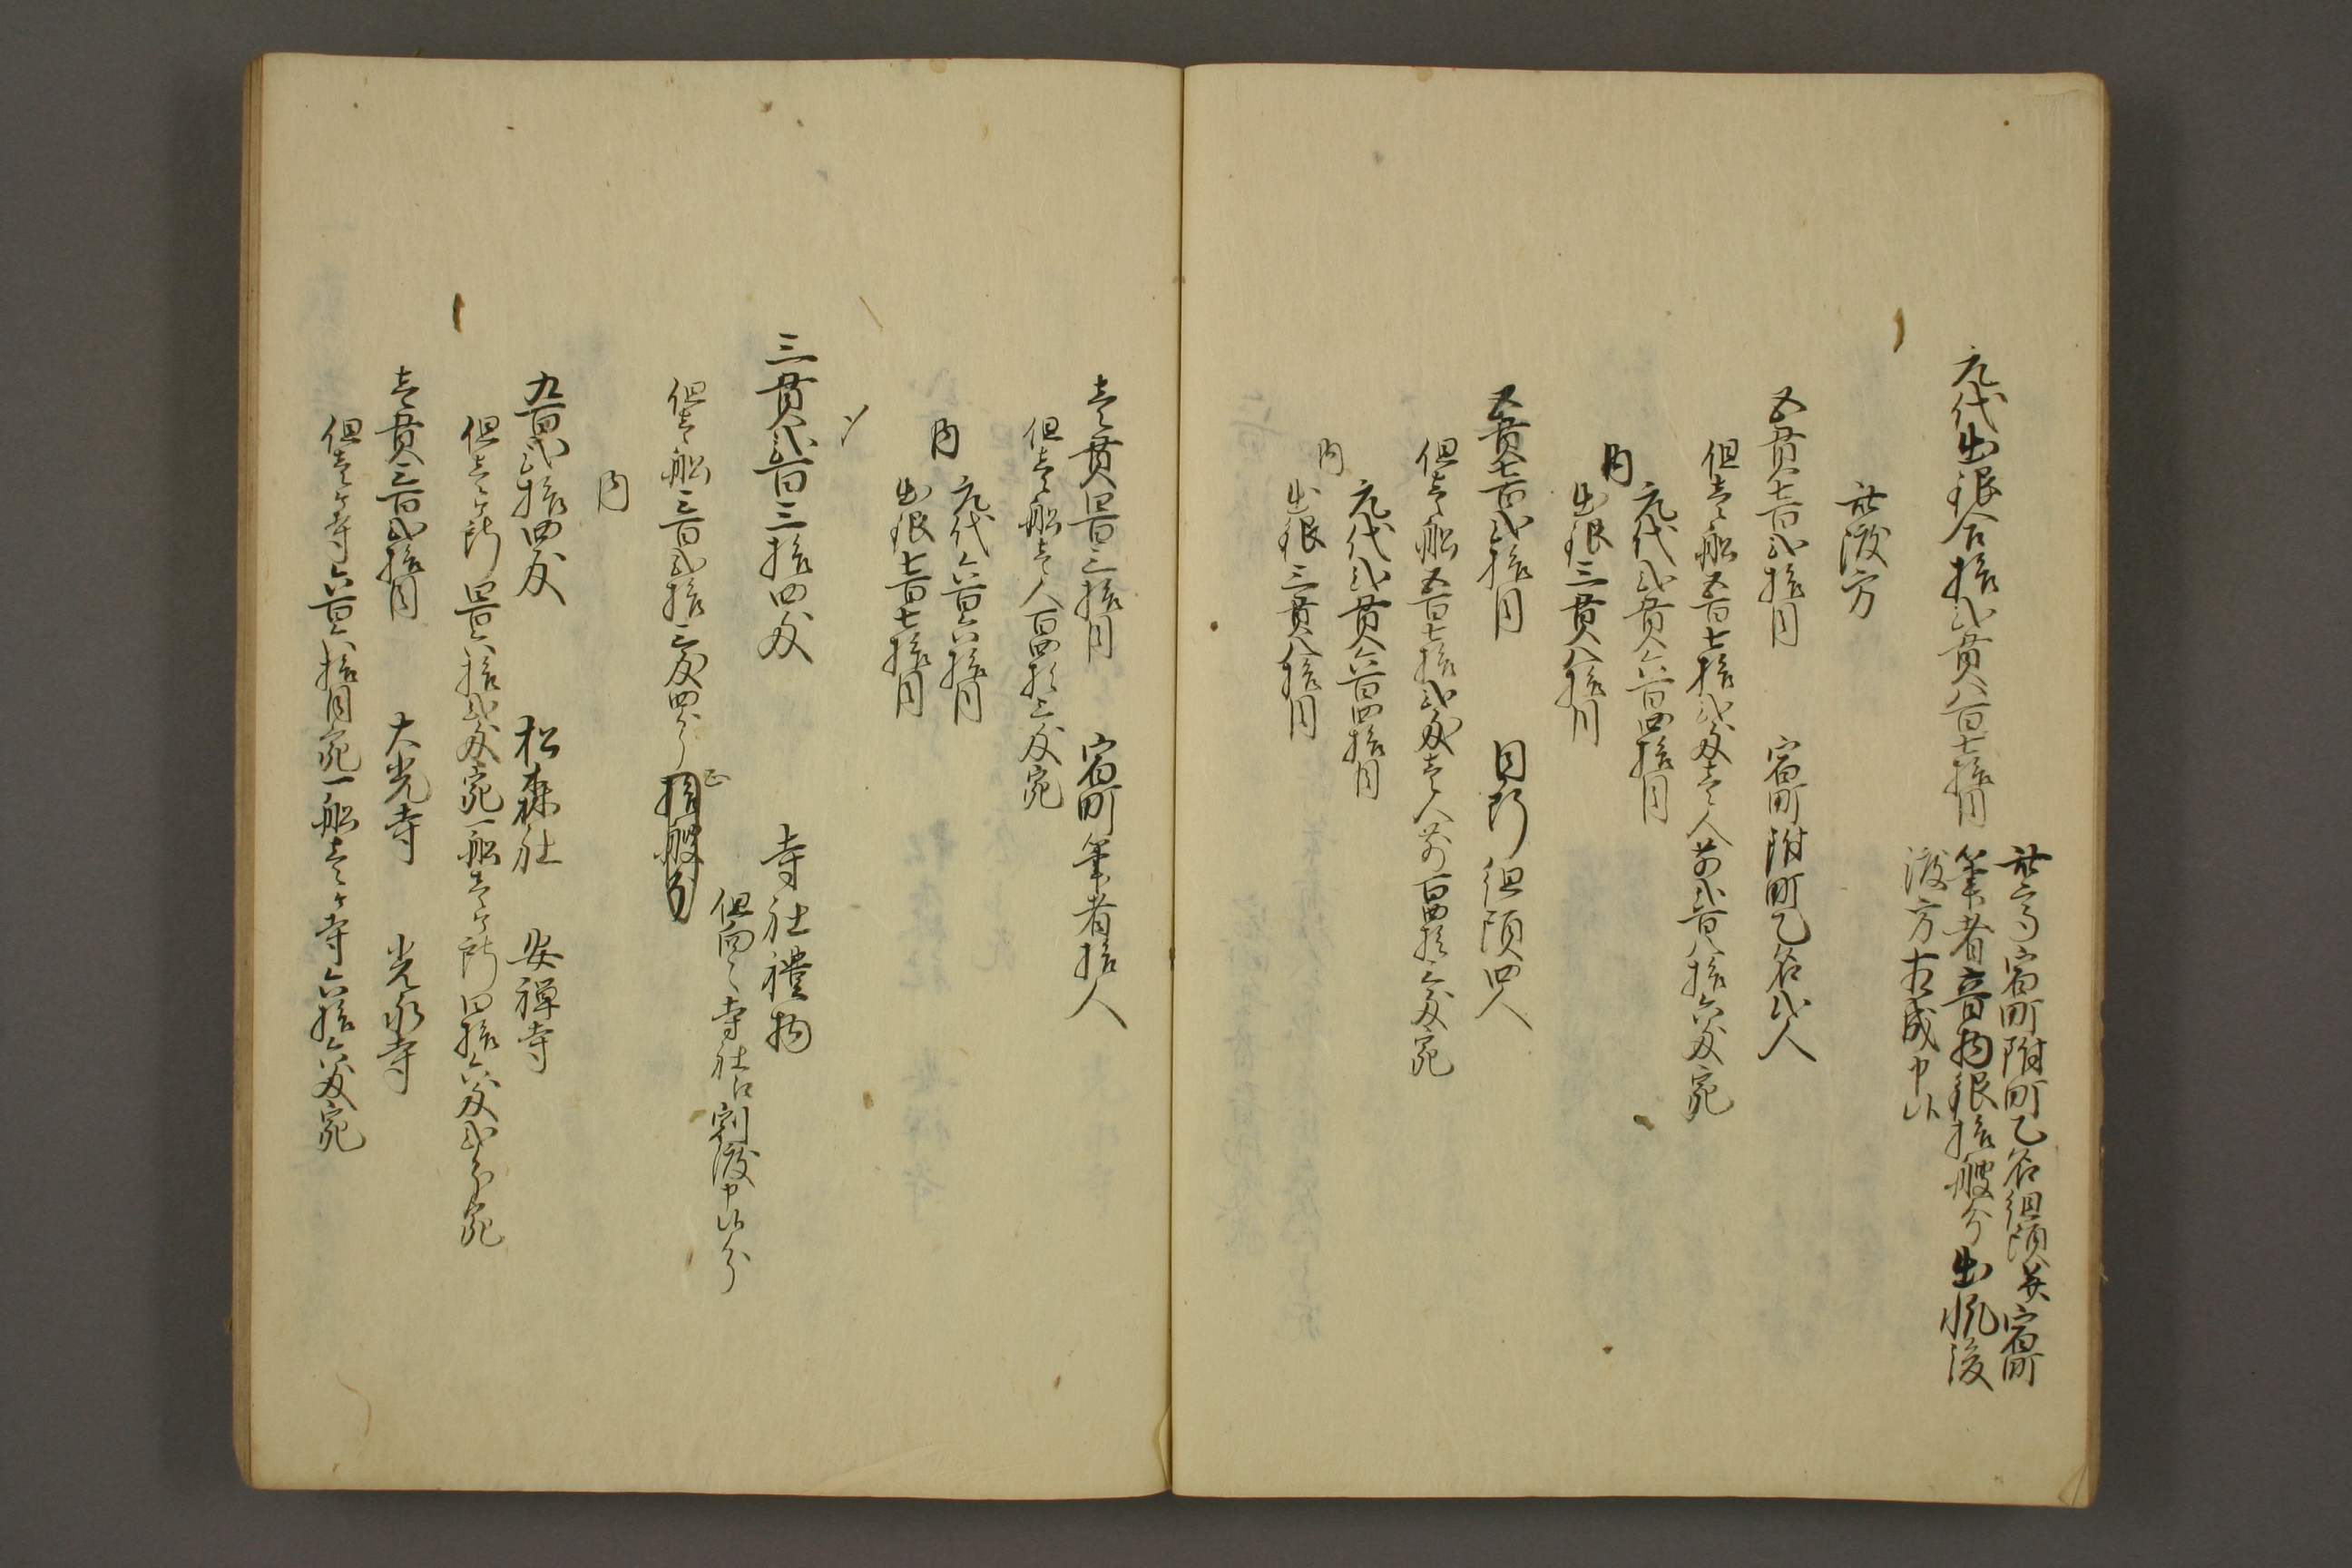 元代出銀合拾弐貫八百七拾目
此高宿町附町乙名組頭并宿町
筆者音物銀拾艘分出帆後
渡方相成申候
此渡方
五貫七百弐拾目 宿町附町乙名弐人
但壱船五百七拾弐匁壱人前弐百八拾六匁宛
内
元代弐貫六百四拾目
出銀三貫八拾目
五貫七百弐拾目 同断組頭四人
但壱船五百七拾弐匁壱人前百四拾三匁宛
内
元代弐貫六百四拾目
出銀三貫八拾目
壱貫四百三拾目 宿町筆者拾人
但壱船壱人百四拾三匁宛
内
元代六百六拾目
出銀七百七拾目
〆
三貫弐百三拾四匁 寺社禮物
但向々寺社江割渡申候分
但壱船三百弐拾三匁四分拾艘分
内
九百弐拾四匁 松森社 安禅寺
但壱ヶ所四百六拾弐匁宛一船壱ヶ所四拾六匁弐分宛
壱貫三百弐拾目 大光寺 光永寺
但壱ヶ寺六百六拾目宛一船壱ヶ寺六拾六匁宛